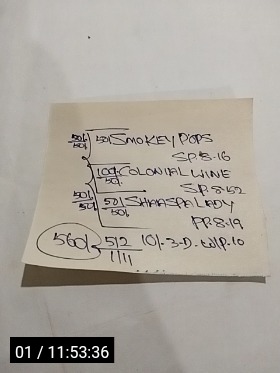 50/- 50/- SMOKEY POPS
50/-
SP.8.16
100/- COLONIAL WINE
50/-
SP.8.52
50/- 50/- SHAASPALADY
50/- 50/-
PP.8.19
560/- 5/2 10/-3-D.
1/11
01 / 11:53:36